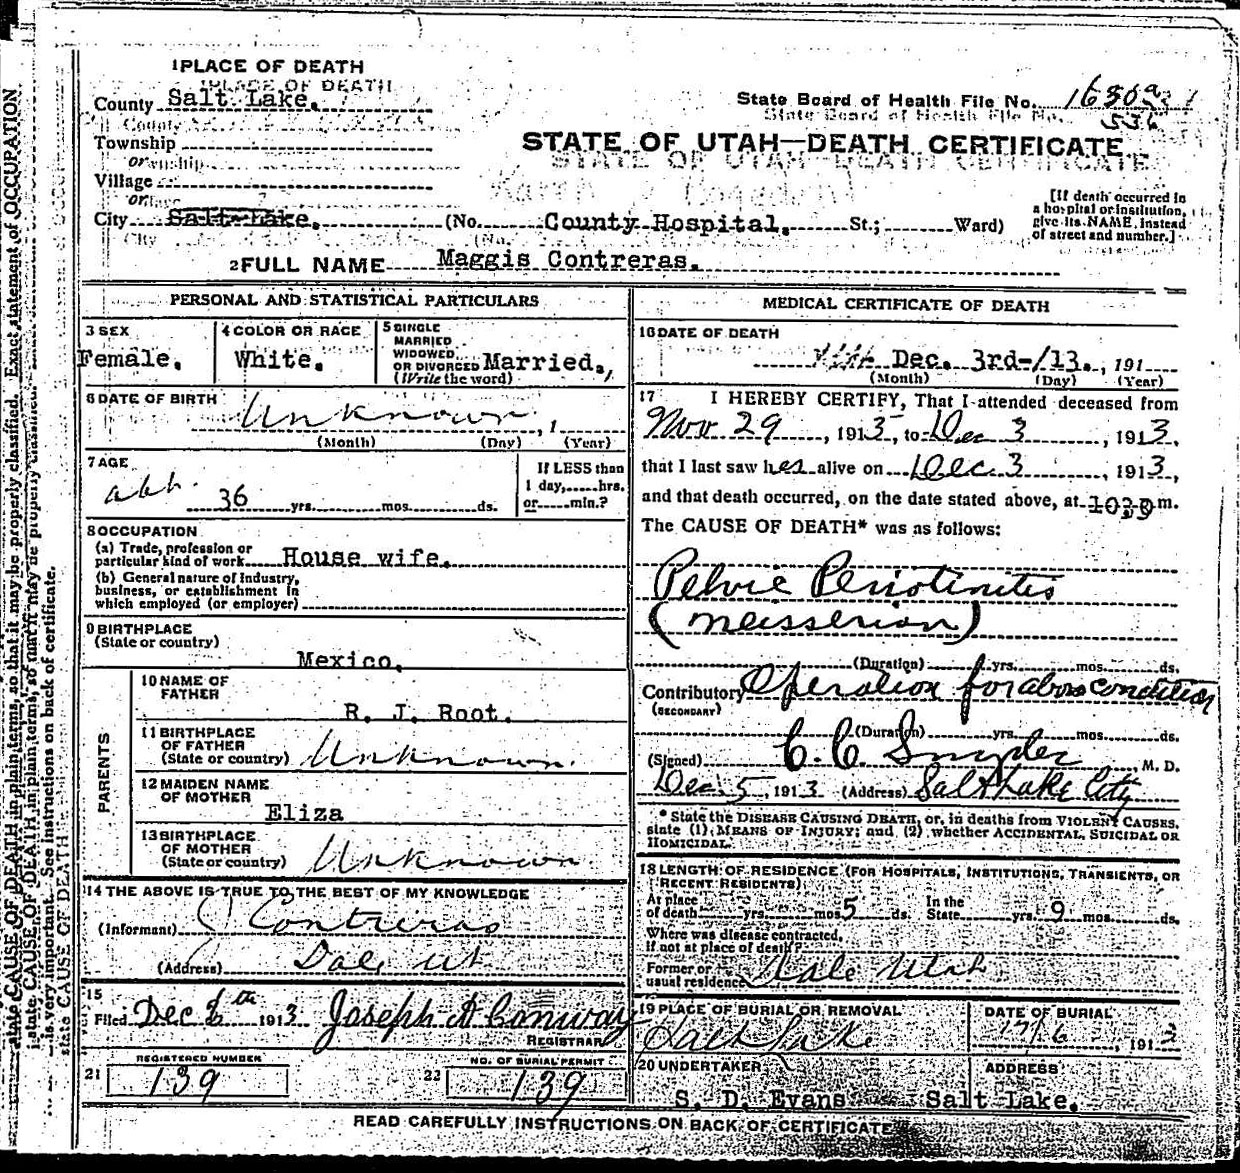 1 PLACE OF DEATH
County Salt Lake.
State Board of Health File No.
Township
or
Village
or
City Salt Lake. (No. County Hospital. St.; Ward)
STATE OF UTAH—DEATH CERTIFICATE
[If death occurred in
a hospital or institution,
give its NAME instead
of street and number.]
2 FULL NAME Maggis Contreras.
PERSONAL AND STATISTICAL PARTICULARS
3 SEX
Female.
4 COLOR OR RACE
White.
5 SINGLE
MARRIED
WIDOWED
OR DIVORCED Married.
(Write the word)
6 DATE OF BIRTH
Unknown, 1
(Month) (Day) (Year)
7 AGE
abt. 36 yrs. mos. ds.
If LESS than
1 day, hrs.
or min.?
8 OCCUPATION
(a) Trade, profession or
particular kind of work House wife.
(b) General nature of industry,
business, or establishment in
which employed (or employer)
9 BIRTHPLACE
(State or country)
Mexico.
PARENTS
10 NAME OF
FATHER
R. J. Root.
11 BIRTHPLACE
OF FATHER
(State or country) Unknown.
12 MAIDEN NAME
OF MOTHER
Eliza
13 BIRTHPLACE
OF MOTHER
(State or country) Unknown
14 THE ABOVE IS TRUE TO THE BEST OF MY KNOWLEDGE
(Informant) Contreras
(Address) Dale Ut
15
Filed Dec 6th 1913 Joseph A Conway
REGISTRAR
REGISTERED NUMBER
21 139
NO. OF BURIAL PERMIT
22 139
MEDICAL CERTIFICATE OF DEATH
16 DATE OF DEATH
Dec. 3rd-/13., 191
(Month) (Day) (Year)
17 I HEREBY CERTIFY, That I attended deceased from
Nov 29, 1913, to Dec 3, 1913,
that I last saw her alive on Dec. 3, 1913,
and that death occurred, on the date stated above, at m.
The CAUSE OF DEATH* was as follows:
Pelvic Peritonitis
(neisserion)
(Duration) yrs. mos. ds.
Contributory Operation for above condition
(SECONDARY)
(Duration) yrs. mos. ds.
(Signed) C. C. Snyder, M. D.
Dec 5, 1913 (Address) Salt Lake City
* State the DISEASE CAUSING DEATH, or, in deaths from VIOLENT CAUSES,
state (1) MEANS OF INJURY; and (2) whether ACCIDENTAL, SUICIDAL OR
HOMICIDAL.
18 LENGTH OF RESIDENCE (FOR HOSPITALS, INSTITUTIONS, TRANSIENTS, OR
RECENT RESIDENTS)
At place
of death yrs. mos. 5 ds.
In the
State yrs. 9 mos. ds.
Where was disease contracted,
if not at place of death?
Former or
usual residence Dale Utah
19 PLACE OF BURIAL OR REMOVAL
Salt Lake
DATE OF BURIAL
, 191
20 UNDERTAKER
S. D. Evans
ADDRESS
Salt Lake.
READ CAREFULLY INSTRUCTIONS ON BACK OF CERTIFICATE
state CAUSE OF DEATH in plain terms, so that it may be properly classified. Exact statement of OCCUPATION
is very important. See instructions on back of certificate.